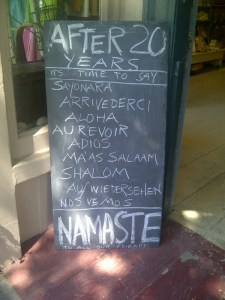 AFTER 20
YEARS
IT'S TIME TO SAY
SAYONARA
ARRIVEDERCI
ALOHA
AU REVOIR
ADIOS
MA'AS SALAAM
SHALOM
AUF WIEDERSEHEN
NOS VEMOS
NAMASTE
TO ALL OUR FRIENDS